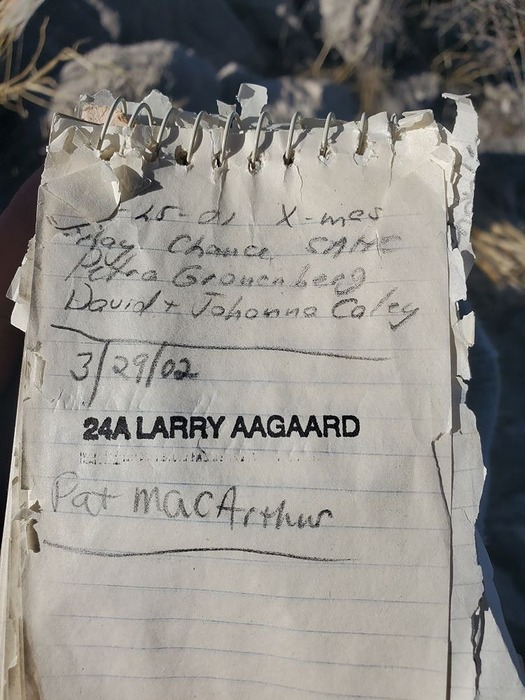 -25-01 X-mas
Chance SAME
Petra Gronenberg
David + Johanna Caley
3/29/02
24A LARRY AAGAARD
Pat MacArthur